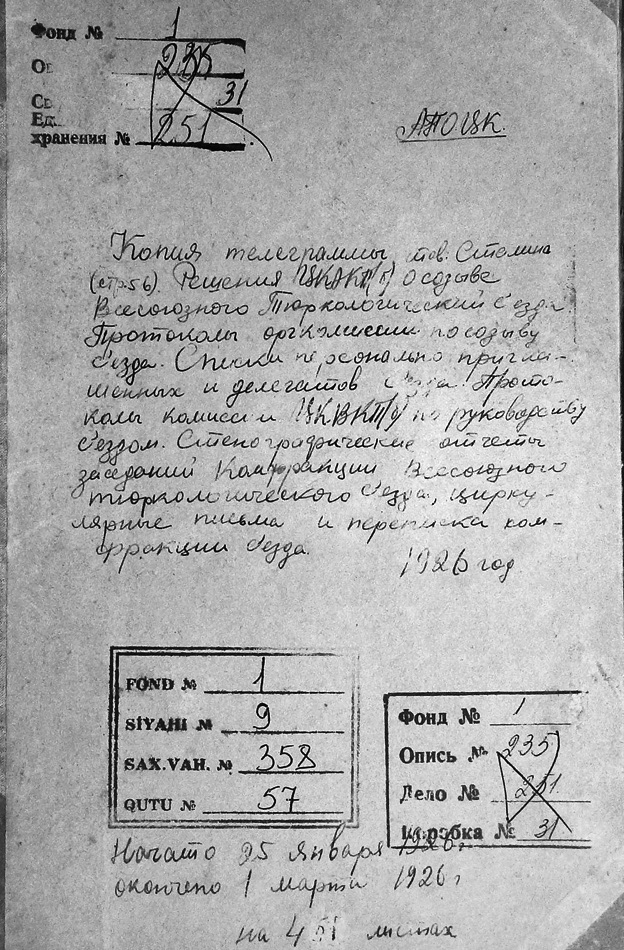 Фонд № 1
235
31
Ед.
хранения № 251
Копия телеграммы тов. Сталина
(стр.56). Решения ЦКВКП(б) о созыве
Всесоюзного Тюркологический с'езда.
Протоколы оргкомиссии по созыву
с'езда. Списки персонально пригла-
шенных и делегатов с'езда. Прото-
колы комиссии ЦКВКП(б) по руководству
с'ездом. Стенографические отчеты
заседаний Комфракции Всесоюзного
тюркологического с'езда, цирку-
лярные письма и переписка ком-
фракции с'езда.
1926 год
FOND № 1
SİYAHI № 9
SAX.VAH. № 358
QUTU № 57
Фонд № 1
Опись № 235
Дело № 251
Коробка № 31
Начато 25 января 1926 г.
окончено 1 марта 1926 г
на 451 листах